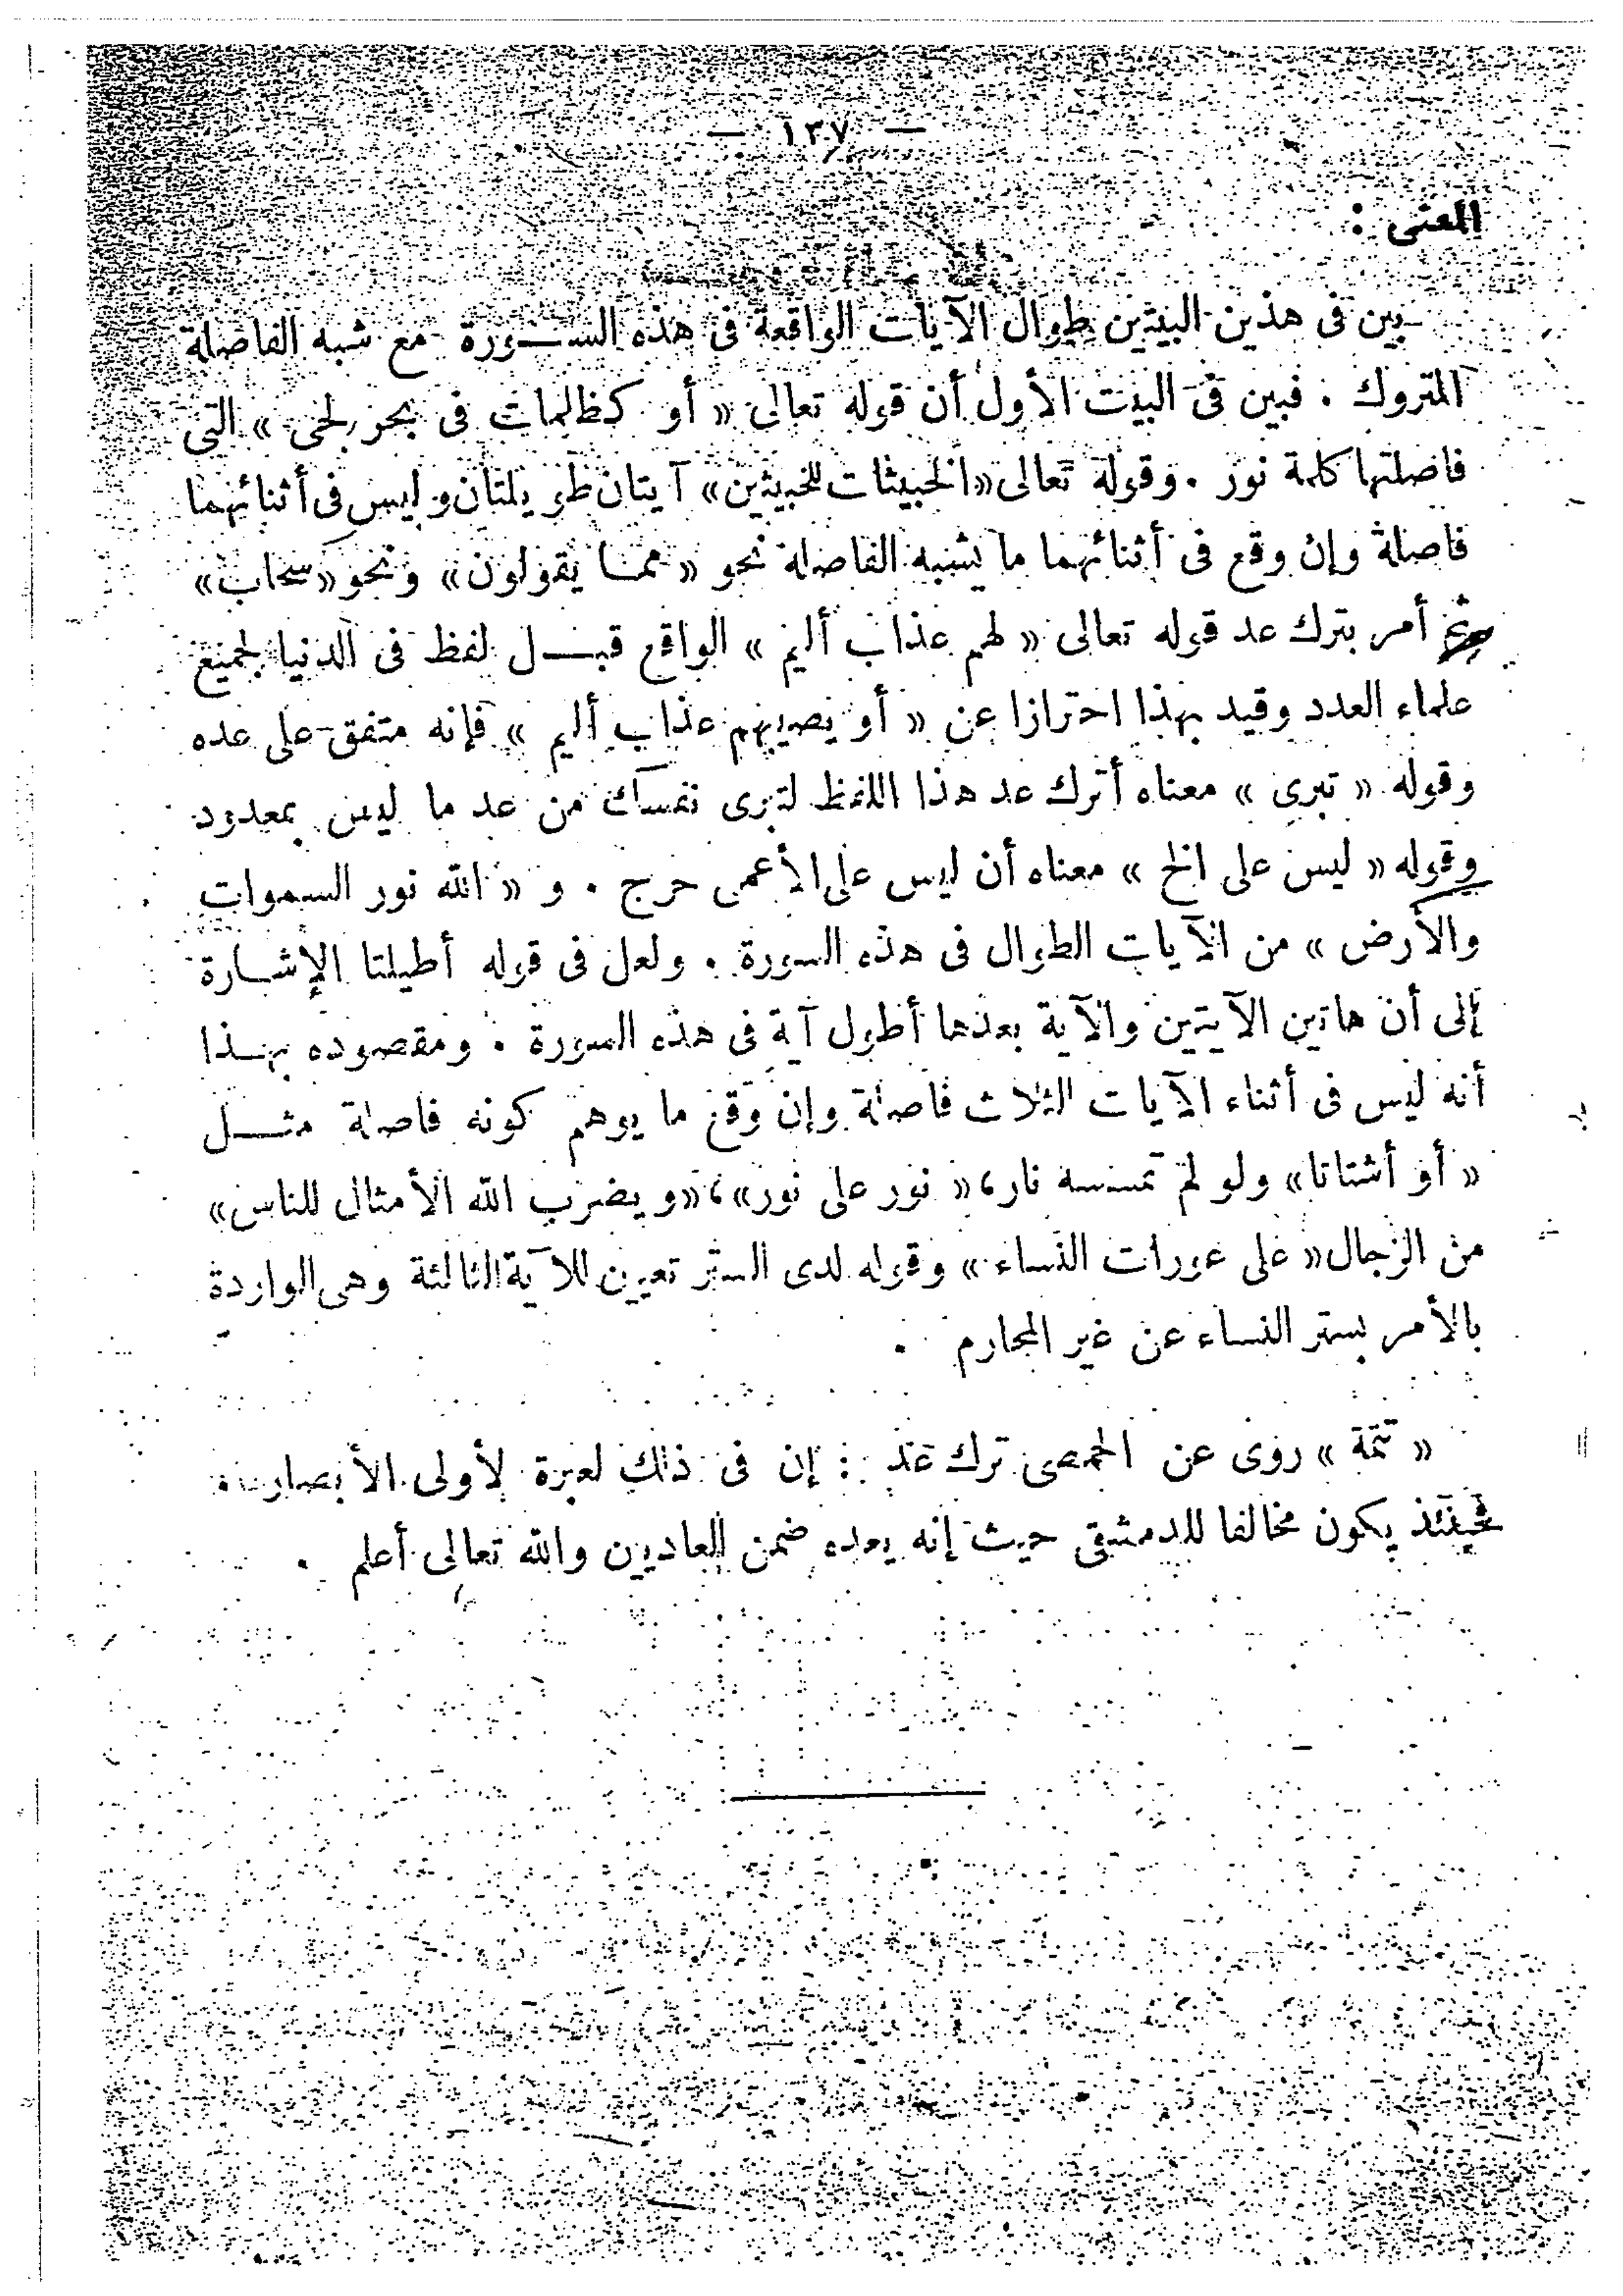 — ١٣٧ —
المعنى :
بين فى هذين البيتين طوال الآيات الواقعة فى هذه الســورة مع شبه الفاصلة
المتروك . فبين فى البيت الأول أن قوله تعالى « أو كظلمات فى بحر لجى » التى
فاصلتها كلمة نور . وقوله تعالى «الخبيثات للخبيثين» آيتان طويلتان وليس فى أثنائهما
فاصلة وإن وقع فى أثنائهما ما يشبه الفاصلة نحو « ممــا يقولون» ونحو «سحاب»
ثم أمر بترك عد قوله تعالى « لهم عذاب أليم » الواقع قبــل لفظ فى الدنيا لجميع
علماء العدد وقيد بهذا احترازا عن « أو يصيبهم عذاب أليم » فإنه متفق على عده
وقوله « تبرى » معناه أترك عد هذا اللفظ لتبرى نفسك من عد ما ليس بمعدود
وقوله « ليس على الخ » معناه أن ليس على الأعمى حرج . و « الله نور السموات
والأرض » من الآيات الطوال فى هذه السورة . ولعل فى قوله أطيلتا الإشــارة
إلى أن هاتين الآيتين والآية بعدها أطول آية فى هذه السورة . ومقصوده بهــذا
أنه ليس فى أثناء الآيات الثلاث فاصلة وإن وقع ما يوهم كونه فاصلة مثــل
« أو أشتاتا» ولو لم تمسسه نار، « نور على نور»، «ويضرب الله الأمثال للناس»
من الرجال « على عورات النساء » وقوله لدى الستر تعيين للآية الثالثة وهى الواردة
بالأمر بستر النساء عن غير المحارم .
« تتمة » روى عن الحمصى ترك عد : إن فى ذلك لعبرة لأولى الأبصار .
فحينئذ يكون مخالفا للدمشقى حيث إنه يعده ضمن العادين والله تعالى أعلم .